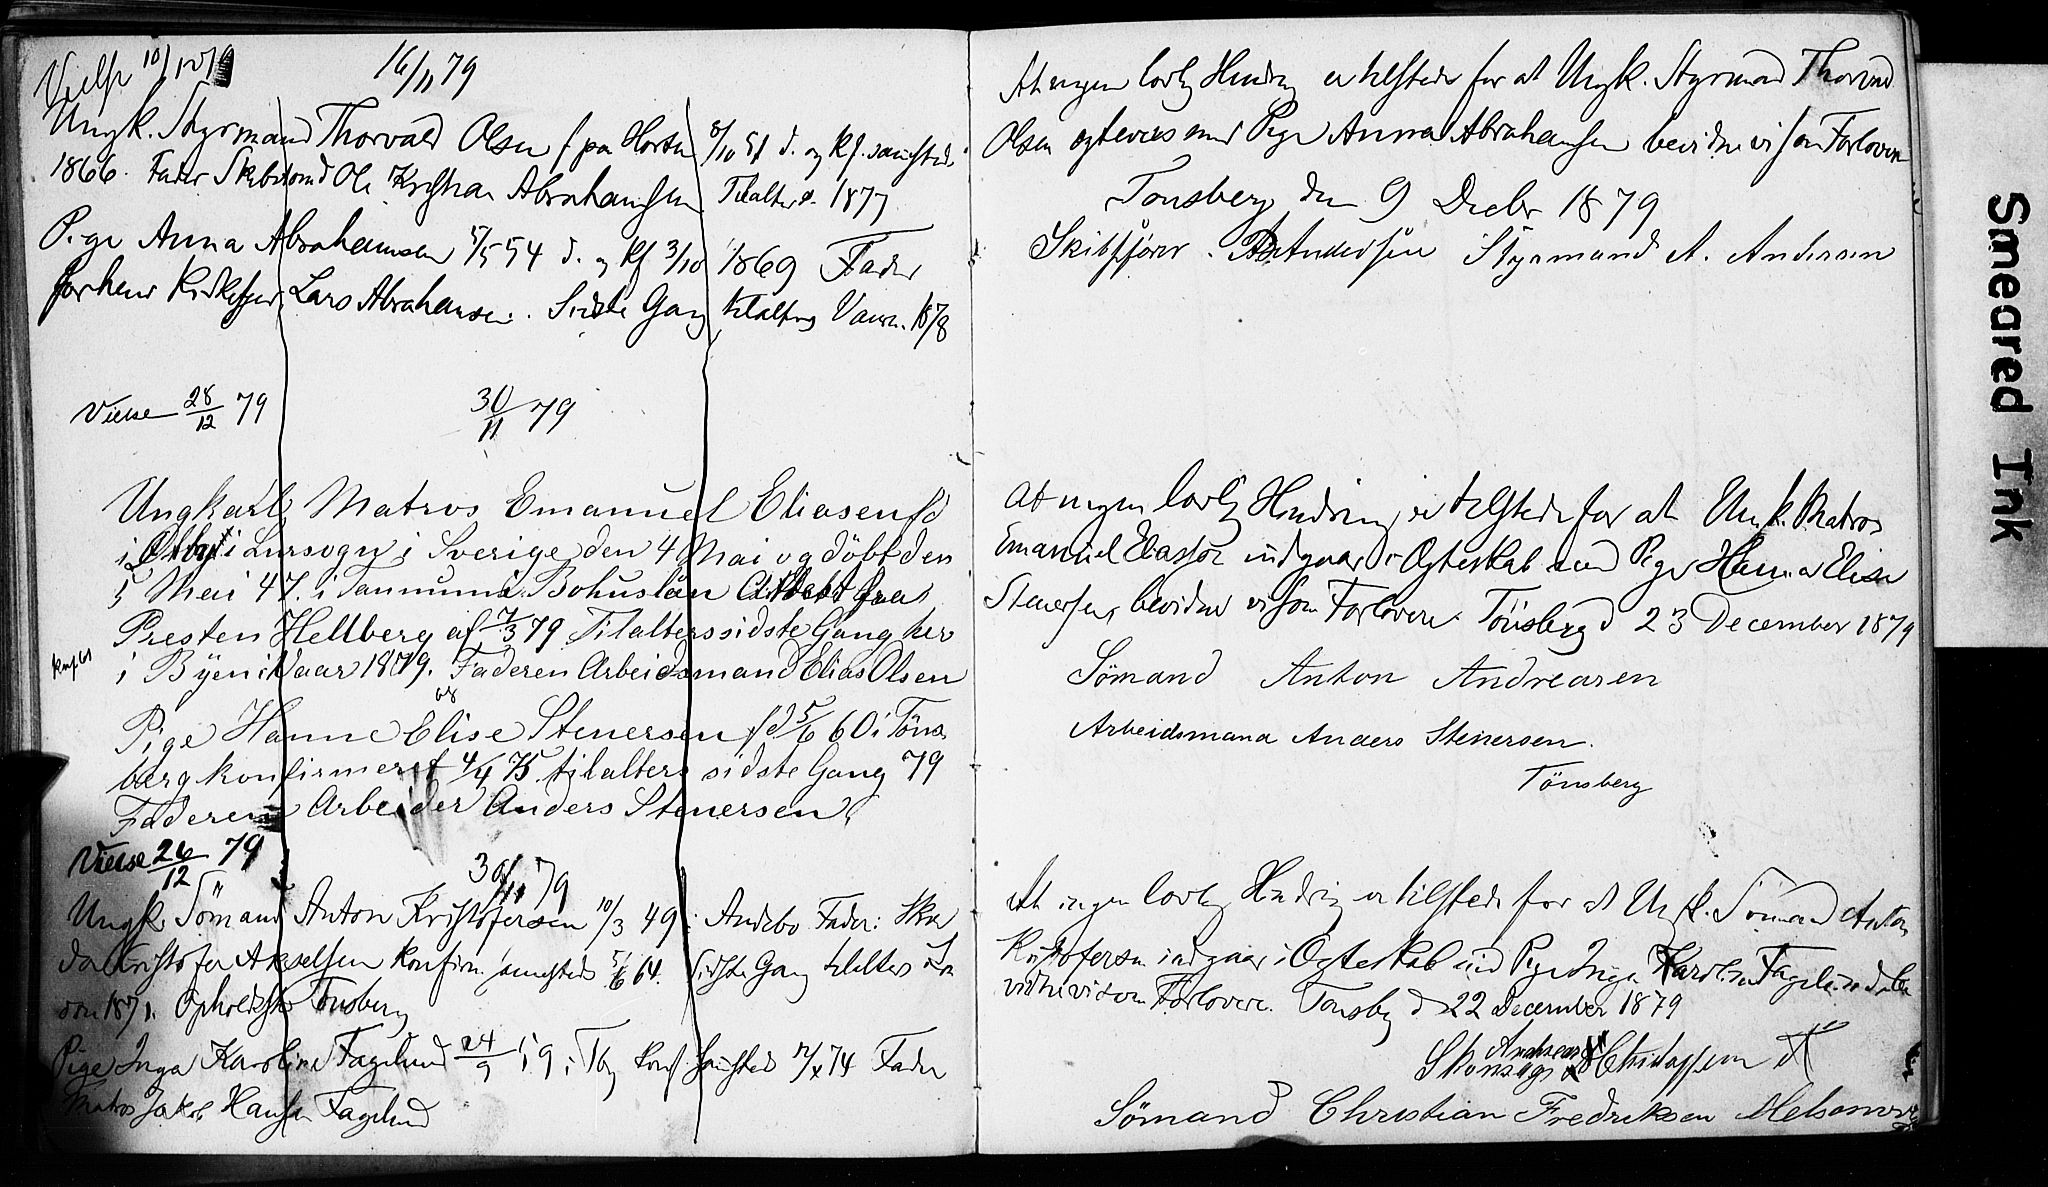 Vielse 10/12 79
16/11 79
Ungk. Styrmand Thorvald Olsen f paa Horten 8/10 51 d. og Kf. sammesteds
1866. Fader Ole Kristian Abrahamsen Tilalters 1877
Pige Anna Abrahamsen 5/5 54 d. og Kf 3/10 1869 Fader
forhenv Lars Abrahamsen. Sidste Gang tilalters Vaaren 1878
Vielse 28/12 79
30/11 79
Ungkarl Matros Emanuel Eliasen fd
i i Lursogn i Sverige den 4 Mai og döbt den
5 Mai 47. i Tannum i Bohuslän Attest fra
Presten Hellberg af 7/3 79 Tilalters sidste Gang her
i Byen i Vaar 1879. Faderen Arbeidsmand Elias Olsen
Pige Hanne Elise Stenersen fd 5/6 60 i Töns
berg konfirmeret 4/4 75 tilalters sidste Gang 79
Faderen Arbeider Anders Stenersen.
Vielse 26/12 79
30/11 79
Ungk. Sömand Anton Kristofersen 10/3 49 i Andebo Fader: Skræ
der Kristofer Akselsen konfirm sammesteds 5/6 64. Sidste Gang tilalters
1871. Opholdsst Tonsberg
Pige Inga Karoline Fagelund 24/9 59 i Tbg konf sammesteds 74 Fader
Matros Jakob Hansen Fagelund
At ingen lovlig Hindring er tilstede for at Ungk. Styrmand Thorvald
Olsen ægtevies med Pige Anna Abrahamsen bevidne vi som Forlovere
Tonsberg den 9 Decbr 1879
Skibsförer. Andersen Styrmand A. Andersen
At ingen lovlig Hindring er tilstede for at Ungk. Matros
Emanuel Eliassen indgaar i Ægteskab med Pige Hanna Elise
Stenersen, bevidne vi som Forlovere. Tönsberg d 23 December 1879
Sömand Anton Andreasen
Arbeidsmand Anders Stenersen.
Tönsberg
At ingen lovlig Hindring er tilstede for at Ungk. Sömand Anton
Kristofersen indgaar i Ægteskab med Pige Inga Karoline Fagelund be
vidne vi som Forlovere. Tonsberg d 22 December 1879
Andreas
Sömand Christian Fredriksen
Smeared Ink